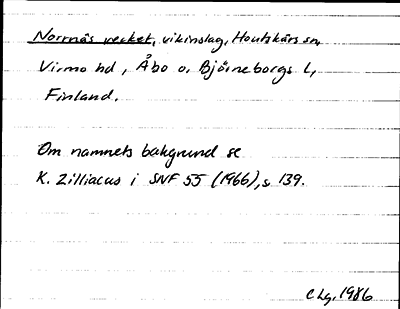 Norrnäs vecket, vikinslag, Houtskärs sn,
Virmo hd, Åbo o. Björneborgs l,
Finland.
Om namnets bakgrund se
K. Zilliacus i SNF 55 (1966), s 139.
CLg. 1986